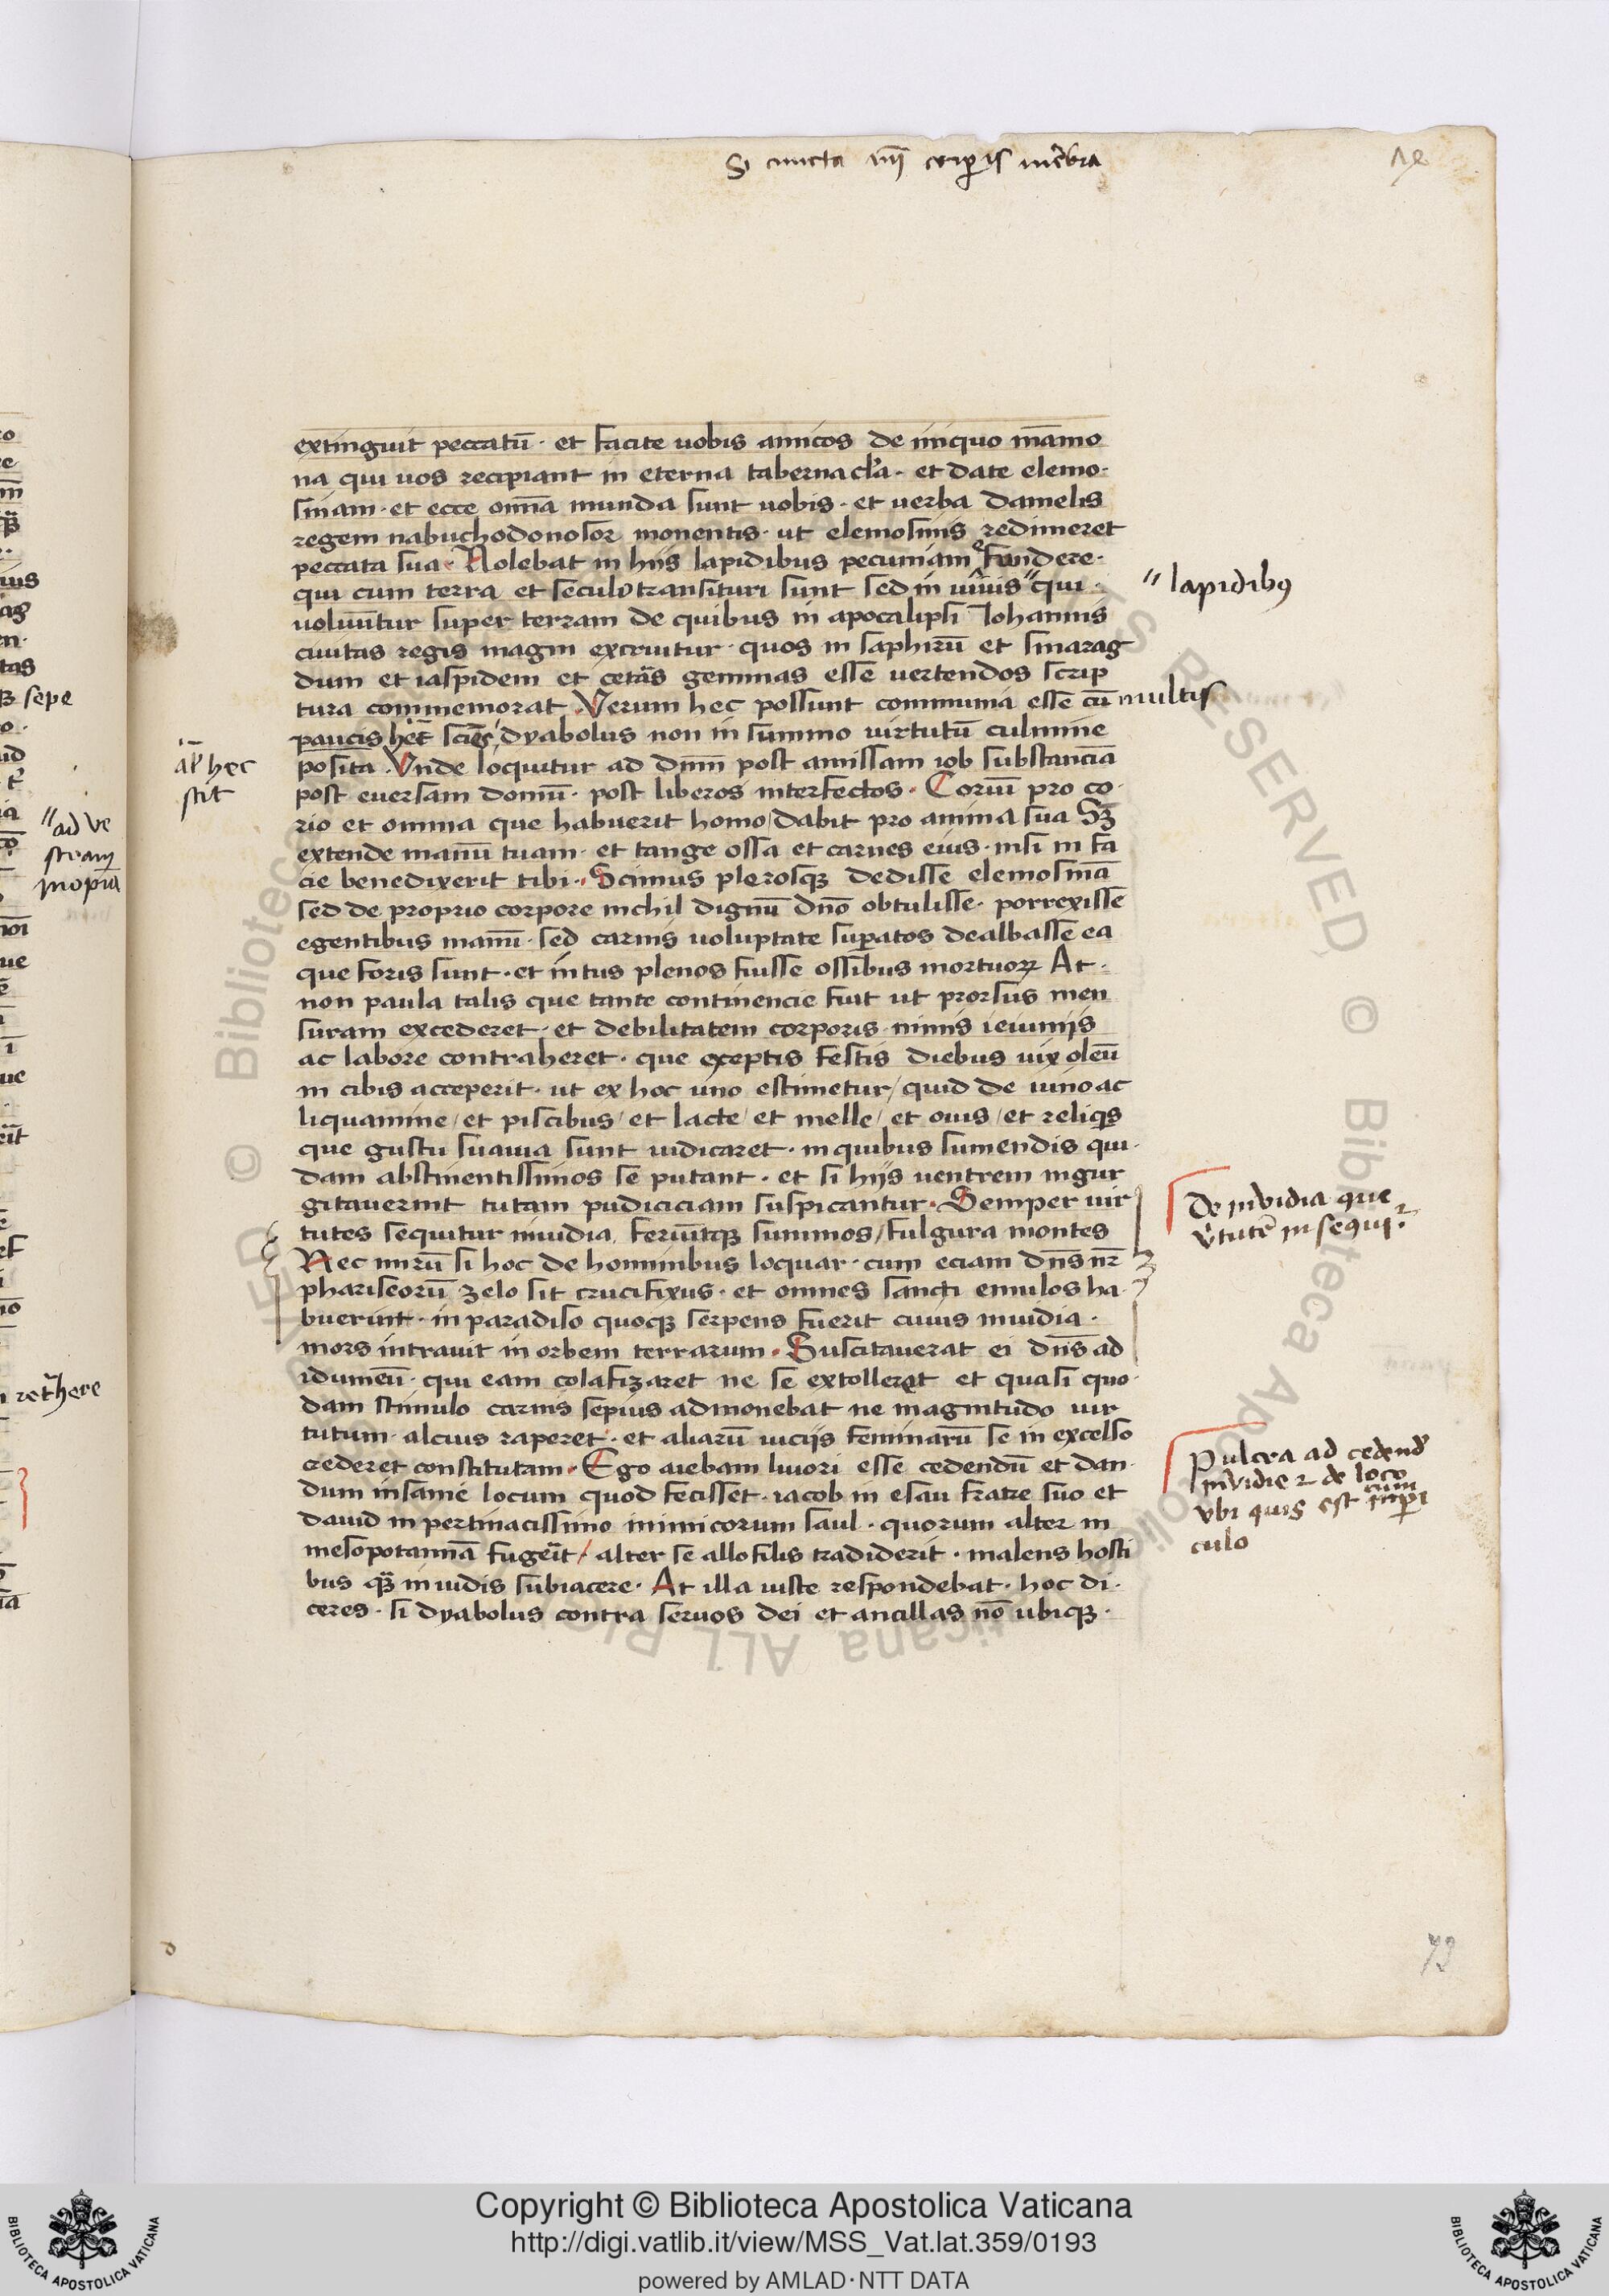 Si cuncta mei corꝑis mēbra
extinguit peccatū · et facite uobis amicos de iniquo māmo
na qui uos recipiant in eterna tabernacl'a · et date elemo-
sinam · et ecce omīa munda sunt uobis · et uerba danielis
regem nabuchodonosor monentis · ut elemosinis redimeret
peccata sua · Nolebat in hijs lapidibus pecuniam effundere ·
qui cum terra et seculo transituri sunt sed in uiuis " qui ·
" lapidibꝰ
uoluūtur super terram de quibus in apocalipsi Iohannis
ciuitas regis magni exstruitur · quos in saphirū et smarag
dum et iaspidem et cetäs gemmas esse uertendos scrip
tura commemorat · Verum hec possunt communia esse cū multis
paucis hēt sciēs dyabolus non in summo uirtutū culmine
al' hec
scit
posita · Vnde loquitur ad dnm̄ post amissam iob substanciā
post euersam domū · post liberos interfectos · Coriū pro co-
rio et omnia que habuerit homo / dabit pro anima sua Sꝫ
extende manū tuam · et tange ossa et carnes eius · nisi in fa
cie benedixerit tibi · Scimus plerosqꝫ dedisse elemosinā
sed de proprio corpore nichil dignū dnō obtulisse · porrexisse
egentibus manū · sed carnis uoluptate suꝑatos dealbasse ea
que foris sunt · et intus plenos fuisse ossibus mortuoꝝ At ·
non paula talis que tante continencie fuit ut prorsus men
suram excederet · et debilitatem corporis · nimis ieiunijs
ac labore contraheret · que exceptis festis diebus uix oleū
in cibis acceperit · ut ex hoc uno estimetur / quid de uino ac
liquamine / et piscibus / et lacte / et melle / et ouis / et reliqis
que gustu suauia sunt iudicaret · in quibus sumendis qui-
dam abstinentissimos se putant · et si hijs uentrem ingur
gitauerint tutam pudiciciam suspicantur · Semper uir
De inuidia que
v̓tutē insequit᷑
tutes sequitur inuidia, feriūtqꝫ summos / fulgura montes
Nec mirū si hoc de hominibus loquar · cum eciam dn̄s nr̄
phariseorū zelo sit crucifixus · et omnes sancti emulos ha-
buerint · in paradiso quoqꝫ serpens fuerit cuius inuidia ·
mors intrauit in orbem terrarum · Suscitauerat ei dn̄s ad
idumeū · qui eam colafizaret ne se extolleret et quasi quo-
dam stimulo carnis sepius admonebat ne magnitudo uir
tutum · alcius raperet · et aliarū uicijs feminarū se in excelso
crederet constitutam · Ego aiebam liuori esse cedendū et dan-
Pulcra ad cedend̓
inuidie ⁊ de loco
vbi quis est cum ꝑi
culo
dum insanie locum quod fecisset · iacob in esau fratre suo et
dauid in pertinacissimo inimicorum saul · quorum alter in
mesopotamiā fugeit / alter se allofilis tradiderit · malens hosti
bus qꝫ inuidis subiacere · At illa iuste respondebat · hoc di-
ceres · si dyabolus contra seruos dei et ancillas nō ubiqꝫ ·
72
"ad ve
stram
inopiā
sepe
Copyright © Biblioteca Apostolica Vaticana
http://digi.vatlib.it/view/MSS_Vat.lat.359/0193
powered by AMLAD·NTT DATA
BIBLIOTECA APOSTOLICA VATICANA
BIBLIOTECA APOSTOLICA VATICANA